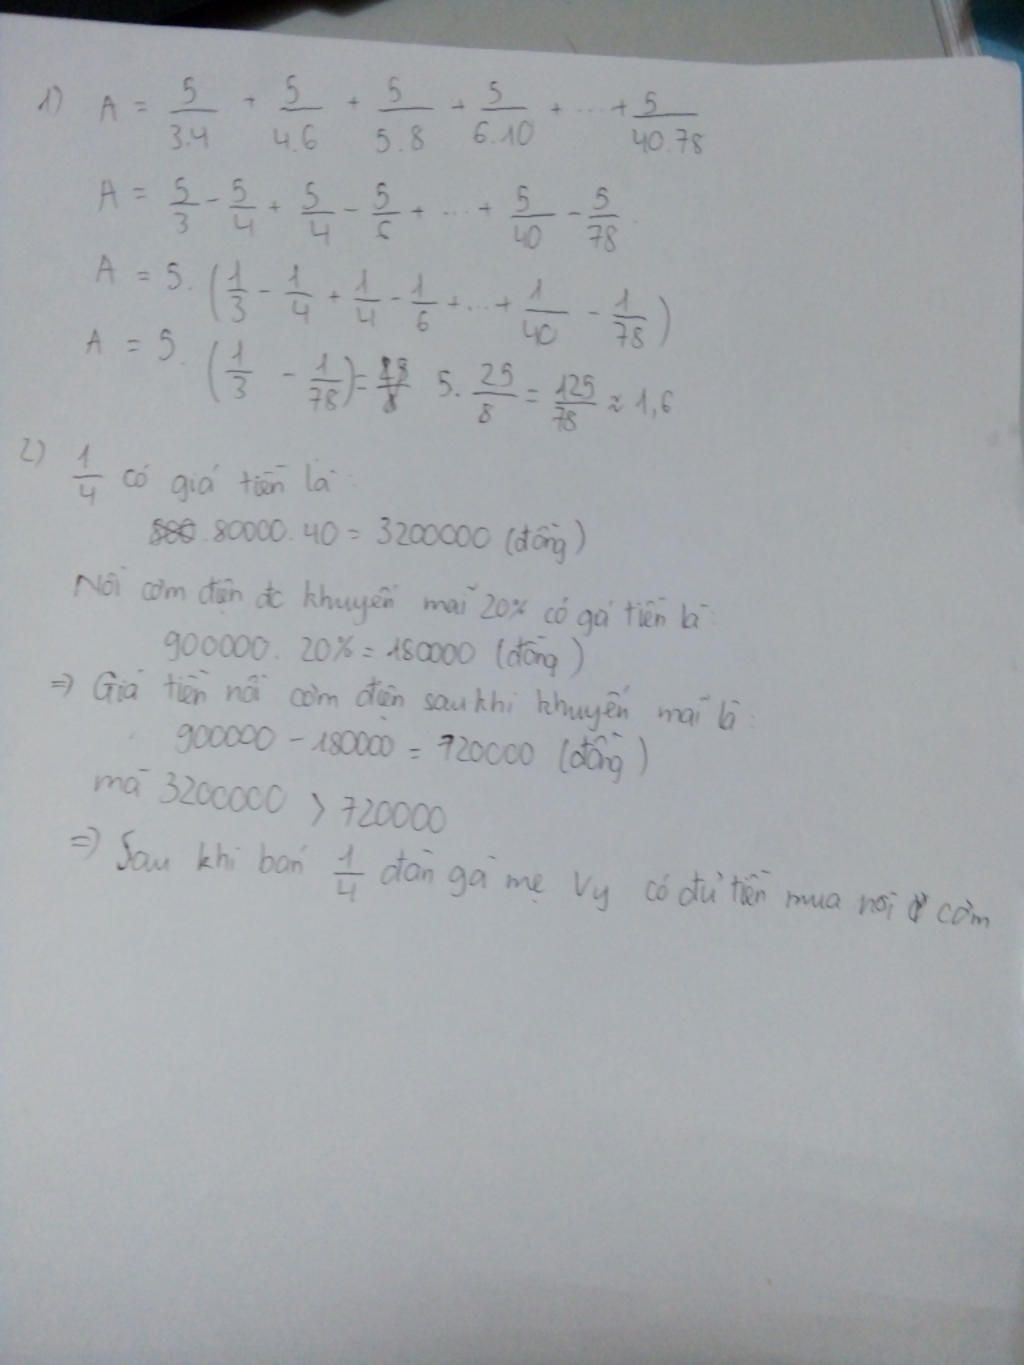 1) A = 5/3.4 + 5/4.6 + 5/5.8 + 5/6.10 + ... + 5/40.78
A = 5/3 - 5/4 + 5/4 - 5/6 + ... + 5/40 - 5/78
A = 5. (1/3 - 1/4 + 1/4 - 1/6 + ... + 1/40 - 1/78)
A = 5. (1/3 - 1/78) = 5. 25/8 = 125/78 ≈ 1,6
2) 1/4 có giá tiền là:
80000.40 = 3200000 (đồng)
Nồi cơm điện đc khuyến mãi 20% có gá tiền là:
900000. 20% = 180000 (đồng)
=> Giá tiền nồi cơm điện sau khi khuyến mãi là:
900000 - 180000 = 720000 (đồng)
mà 3200000 > 720000
=> Sau khi bán 1/4 đàn gà mẹ Vy có đủ tiền mua nồi cơm